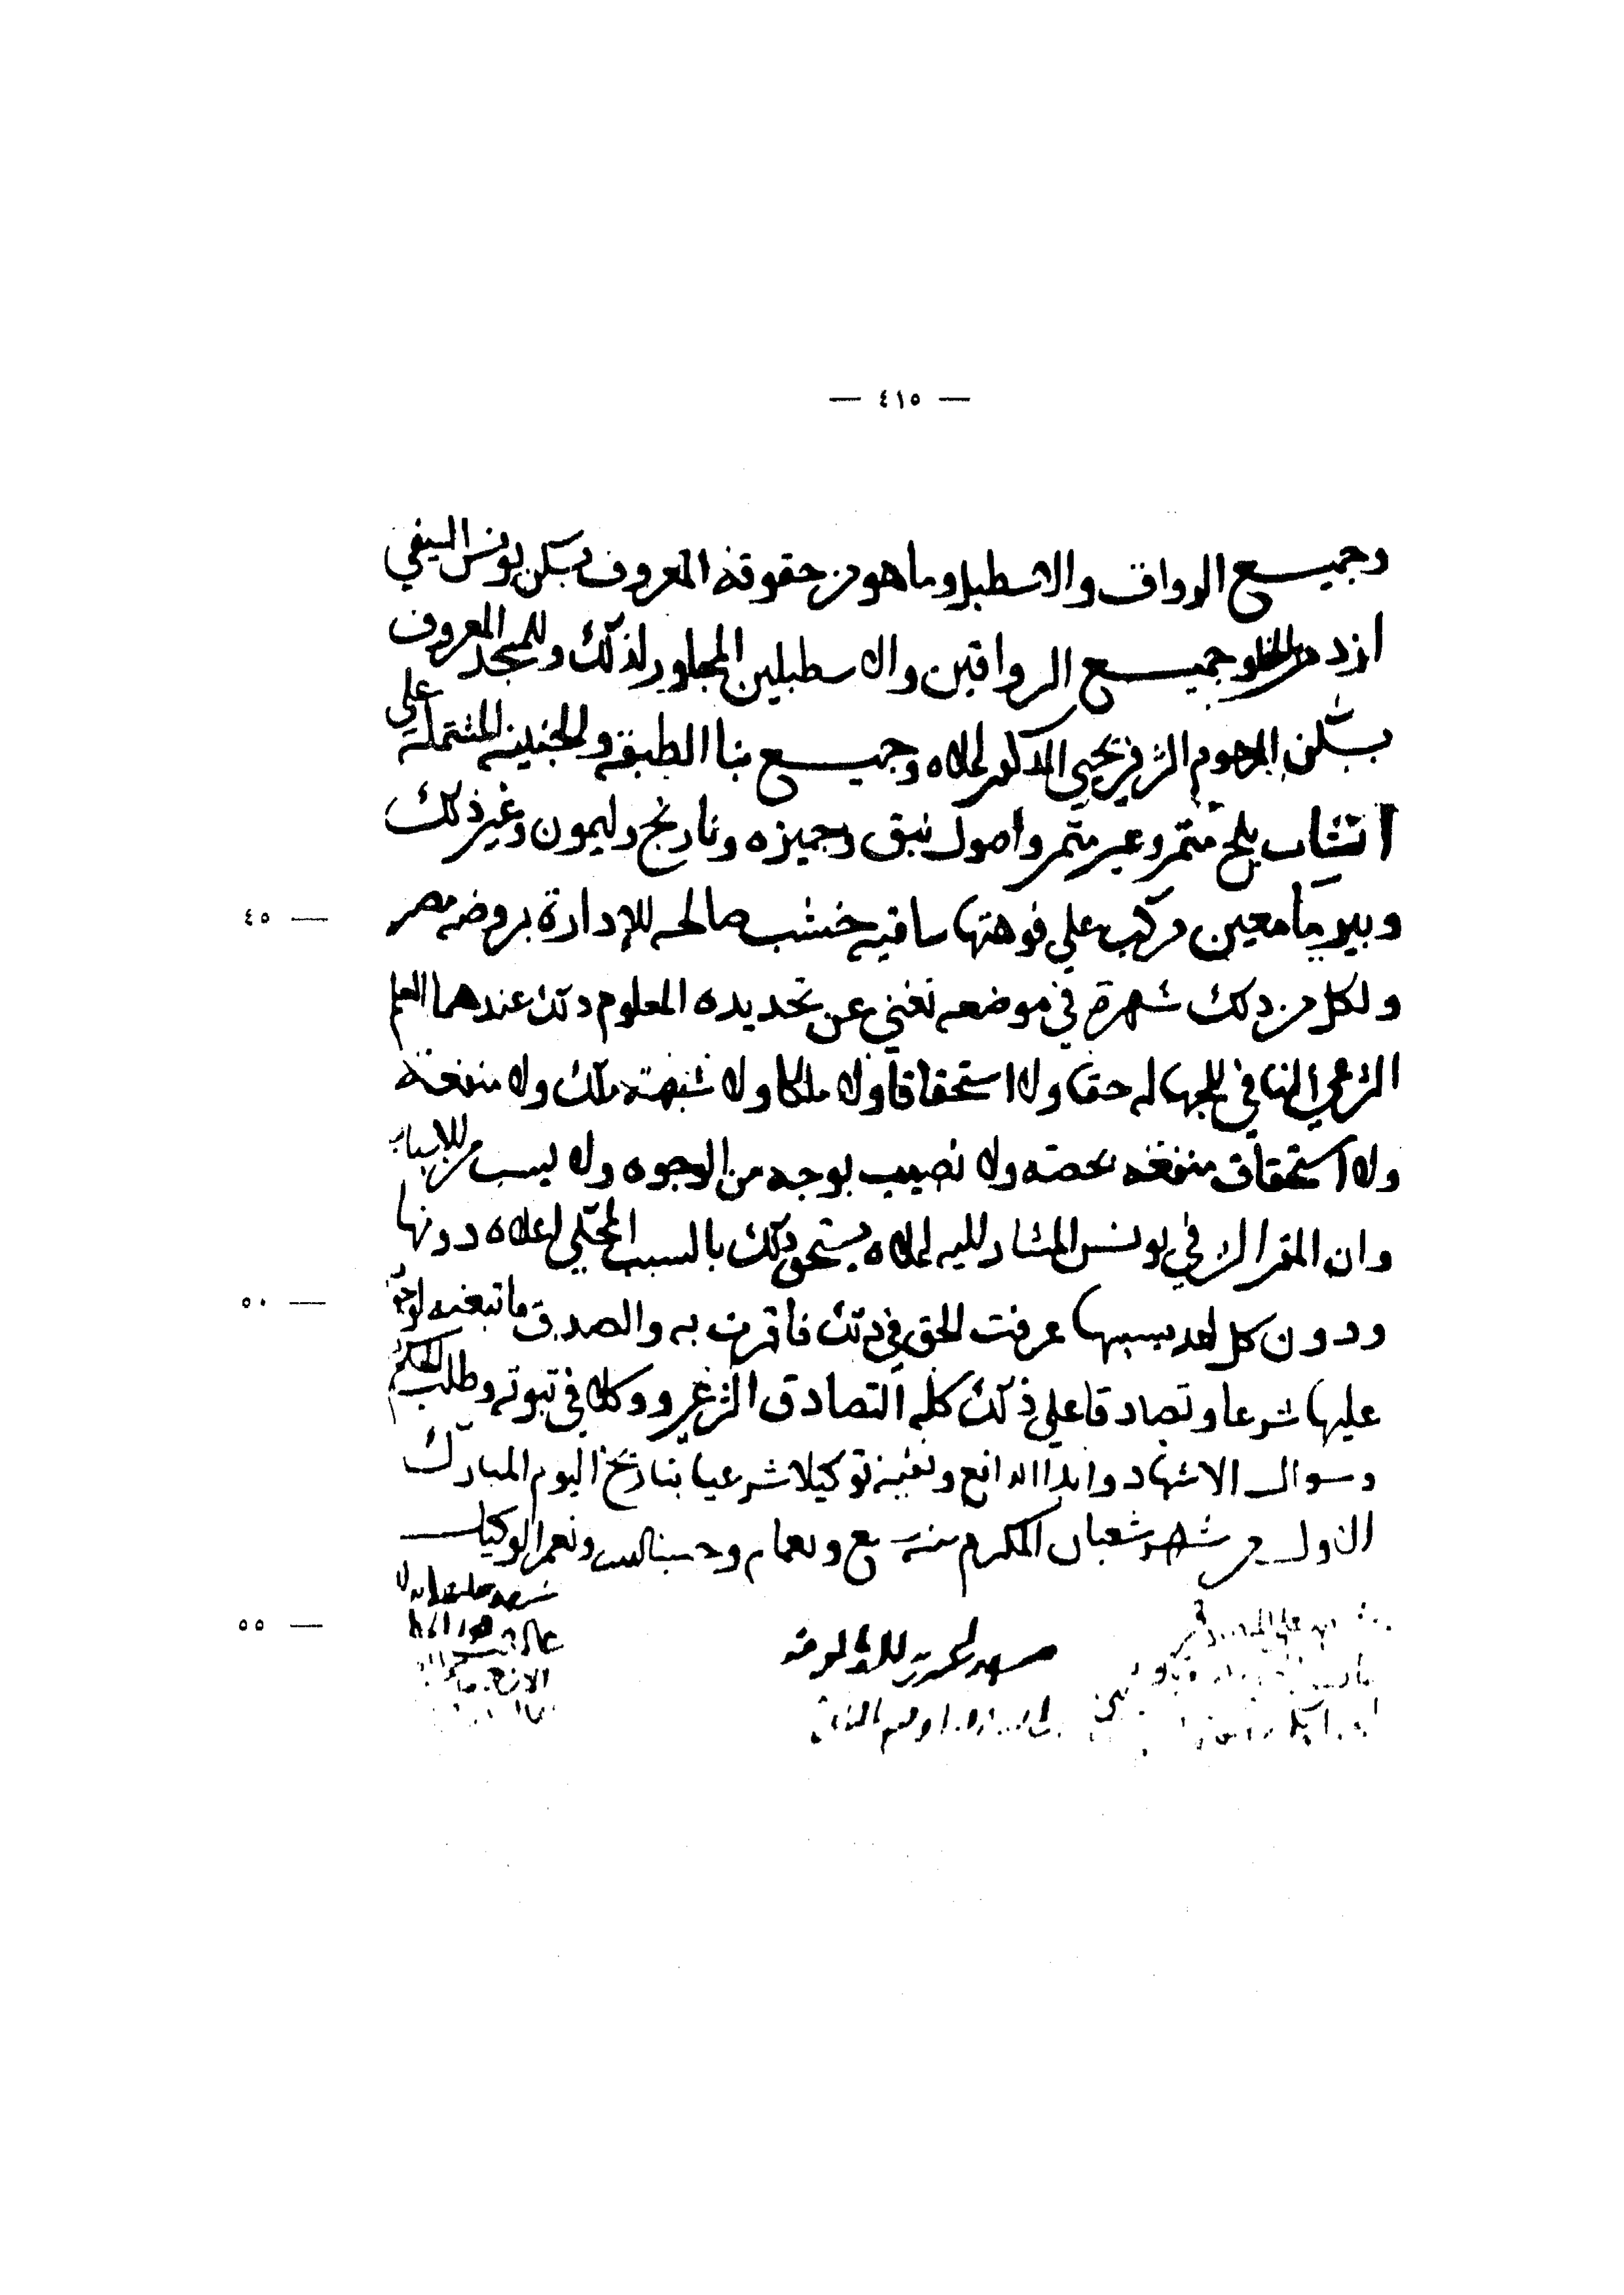 — ٤١٥ —
وجميع الرواق والاسطبل وما هو من حقوقه المعروف بسكن يونس السيفي
ازدمر وجميع الرواقين والاسطبلين المجاور لذلك وللمسجد المعروف
بسكن المرحوم الشرفي يحيى المذكور اعلاه وجميع بنا الطبقه والجنينه المشتمله على
انشاب بلح مثمر وغير مثمر واصول نبق وجميزه ونارنج وليمون وغير ذلك
٤٥ — وبير ما معين مركب علي فوهتها ساقيه خشب صالحه للإدارة بروضه مصر
ولكل من ذلك شهرة في موضعه تغني عن تحديده المعلوم ذلك عندهما العلم
الشرعي النافي للجهاله حقا ولا استحقاقا ولا ملكا ولا شبهة ملك ولا منفعة
ولا استحقاق منفعه بحصه ولا نصيب بوجه من الوجوه ولا بسبب من الاسباب
وان المقر الشرفي يونس المشار اليه اعلاه يستحق ذلك بالسبب المحكي اعلاه دونها
٥٠ — ودون كل احد بسببها عرفت الحق في ذلك فاقرت به والصدق فاتبعته لوجوبه
عليها شرعا وتصادقا على ذلك كله التصادق الشرعي ووكلا في ثبوته وطلب الحكم به
وسوال الاشهاد وابدا الدافع ونفيه توكيلا شرعيا بتاريخ اليوم المبارك
الاول من شهر شعبان المكرم سنة وحسبنا الله ونعم الوكيل
٥٥ —